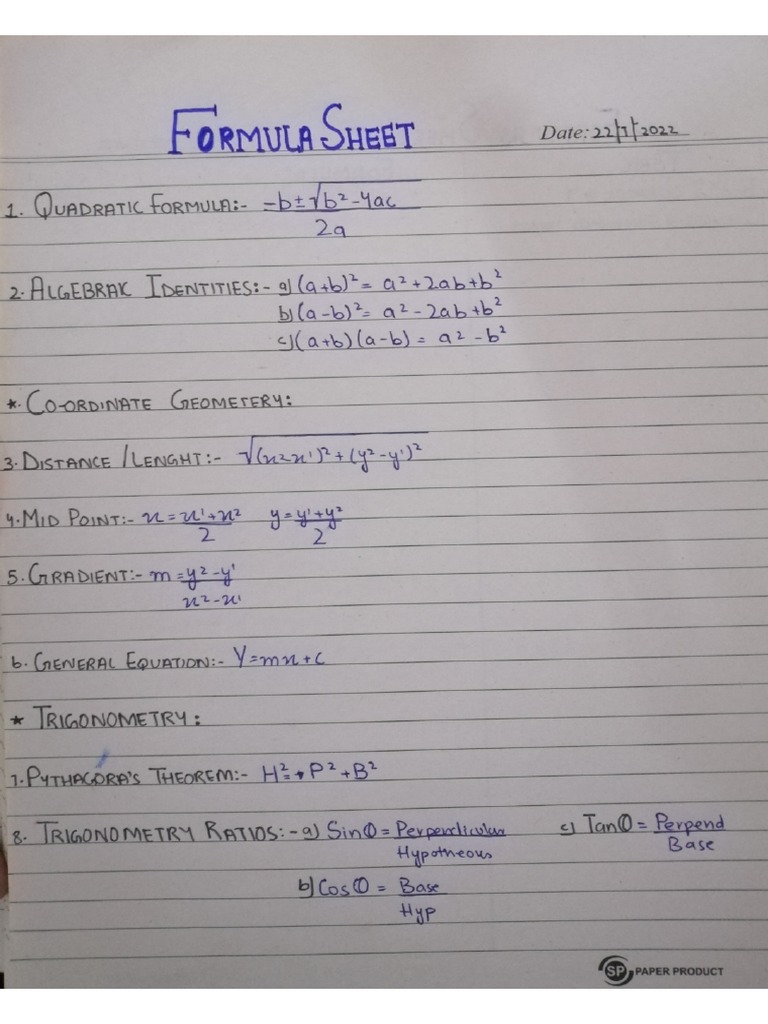 FORMULA SHEET
Date: 22/1/2022
1. QUADRATIC FORMULA:- -b±√b²-4ac
2a
2. ALGEBRAIC IDENTITIES:- a) (a+b)² = a²+2ab+b²
b) (a-b)² = a² - 2ab+b²
c) (a+b) (a-b) = a² - b²
*. CO-ORDINATE GEOMETERY:
3. DISTANCE / LENGHT:- √(x²-x¹)²+(y²-y¹)²
4. MID POINT:- x = x¹+x² y = y¹+y²
2 2
5. GRADIENT:- m = y²-y¹
x²-x¹
6. GENERAL EQUATION:- Y=mx+c
* TRIGONOMETRY:
7. PYTHAGORA'S THEOREM:- H² = P²+B²
8. TRIGONOMETRY RATIOS:- a) Sinθ = Perpendicular c) Tanθ = Perpend
Hypotheous Base
b) Cosθ = Base
Hyp
SP PAPER PRODUCT